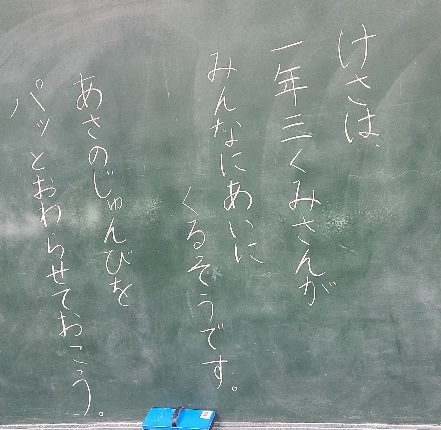 けさは、
一年三くみさんが
みんなにあいに
くるそうです。
あさのじゅんびを
パッとおわらせておこう。